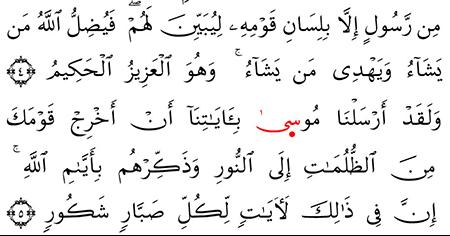 مِن رَّسُولٍ إِلَّا بِلِسَانِ قَوْمِهِۦ لِيُبَيِّنَ لَهُمْ ۖ فَيُضِلُّ ٱللَّهُ مَن
يَشَآءُ وَيَهْدِى مَن يَشَآءُ ۚ وَهُوَ ٱلْعَزِيزُ ٱلْحَكِيمُ ﴿٤﴾
وَلَقَدْ أَرْسَلْنَا مُوسَىٰ بِـَٔايَـٰتِنَآ أَنْ أَخْرِجْ قَوْمَكَ
مِنَ ٱلظُّلُمَـٰتِ إِلَى ٱلنُّورِ وَذَكِّرْهُم بِأَيَّىٰمِ ٱللَّهِ ۚ
إِنَّ فِى ذَٰلِكَ لَـَٔايَـٰتٍ لِّكُلِّ صَبَّارٍ شَكُورٍ ﴿٥﴾